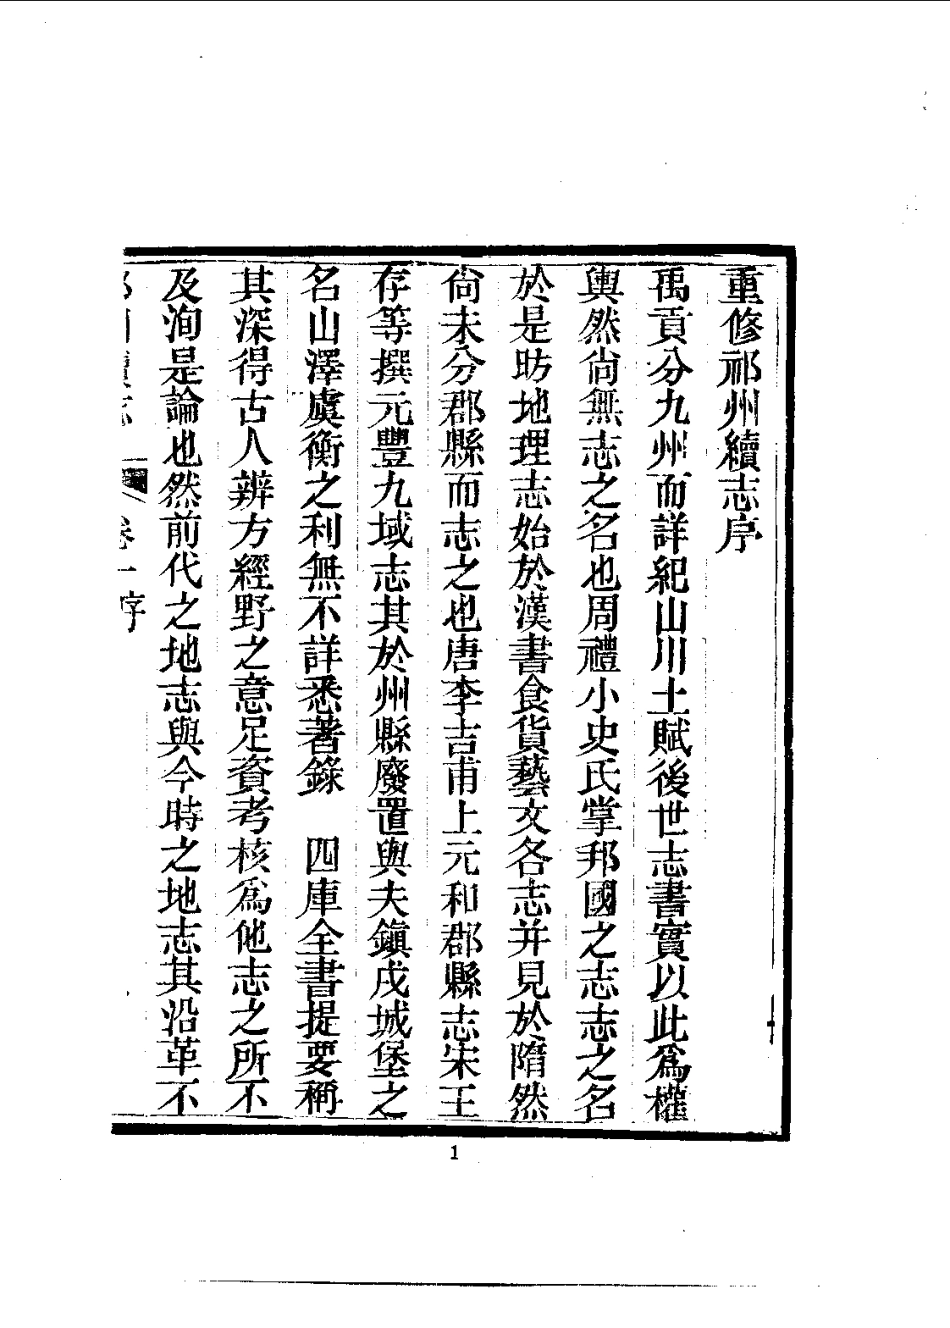 重修祁州續志序
禹貢分九州而詳紀山川土賦後世志書實以此爲權
輿然尙無志之名也周禮小史氏掌邦國之志志之名
於是昉地理志始於漢書食貨藝文各志并見於隋然
尙未分郡縣而志之也唐李吉甫上元和郡縣志宋王
存等撰元豐九域志其於州縣廢置與夫鎮戍城堡之
名山澤虞衡之利無不詳悉著錄　四庫全書提要稱
其深得古人辨方經野之意足資考核爲他志之所不
及洵是論也然前代之地志與今時之地志其沿革不
卷一序
1